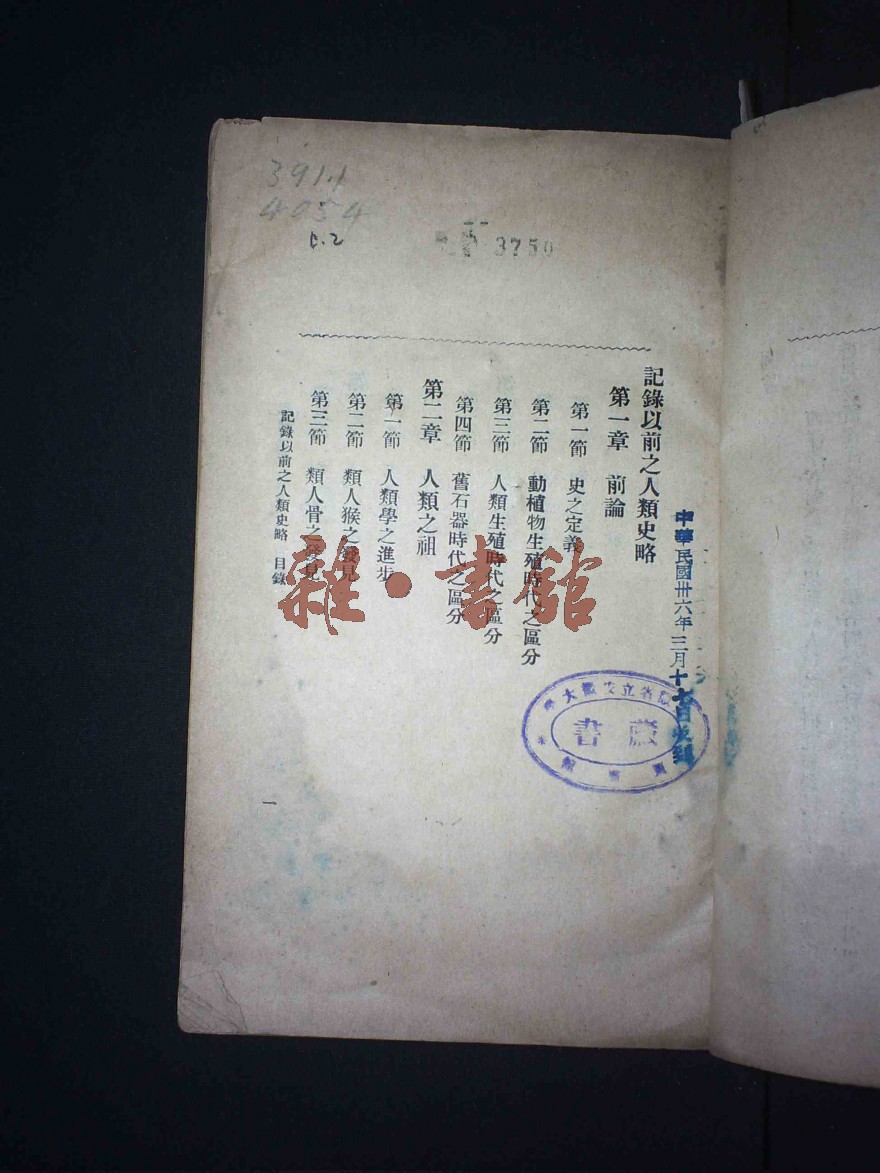 391.1
4054
c.2
3750
記錄以前之人類史略
第一章 前論
第一節 史之定義
第二節 動植物生殖時代之區分
第三節 人類生殖時代之區分
第四節 舊石器時代之區分
第二章 人類之祖
第一節 人類學之進步
第二節 類人猴之發見
第三節 類人骨之發見
記錄以前之人類史略 目錄
一
中華民國卅六年三月十七日收到
省立安徽大學
圖書館
藏書
雜·書館